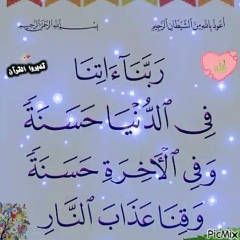 أعوذ بالله من الشيطان الرجيم
بسم الله الرحمن الرحيم
تدبروا القرآن
رَبَّنَآ ءَاتِنَا
فِى ٱلدُّنْيَا حَسَنَةً
وَفِى ٱلْأَخِرَةِ حَسَنَةً
وَقِنَا عَذَابَ ٱلنَّارِ
PicMix